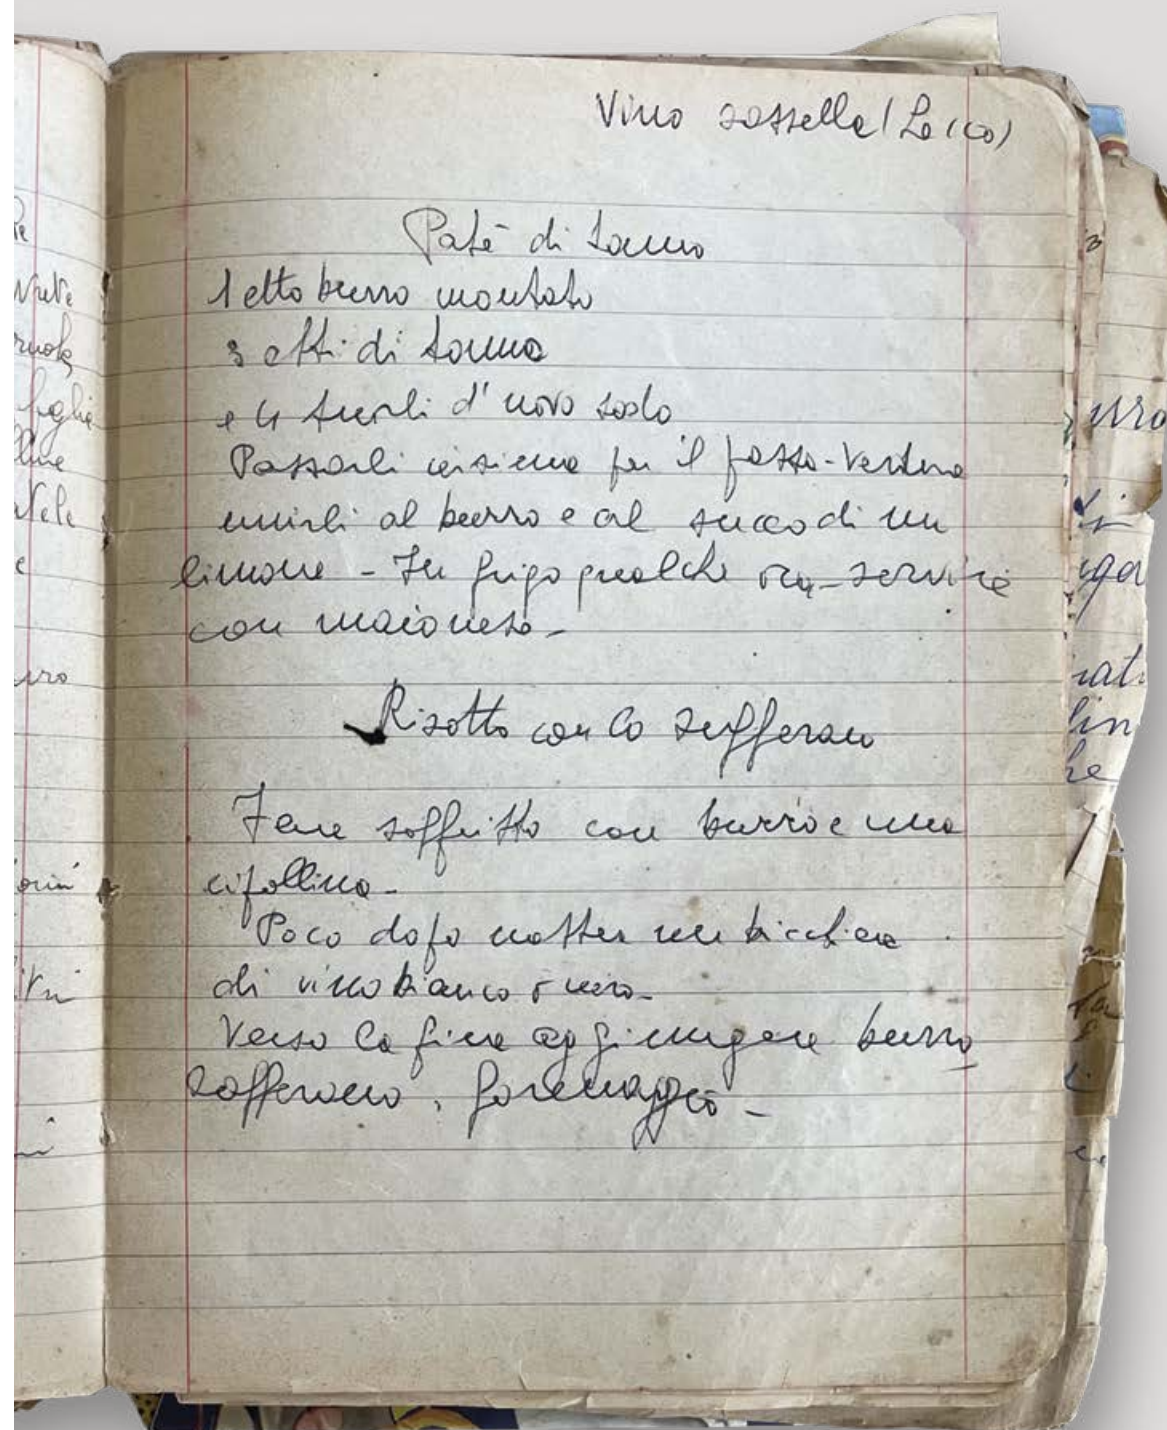 Vino sassella (Lecco)
Patè di tonno
1 etto burro montato
3 etti di tonno
e 4 tuorli d'uovo sodo
Passarli insieme per il passa-verdura
unirli al burro e al succo di un
limone - In frigo qualche ora - servire
con maionese -
Risotto con lo zafferano
Fare soffritto con burro e una
cipollina -
Poco dopo metter un bicchiere
di vino bianco o nero -
Verso la fine aggiungere burro
zafferano, formaggio -